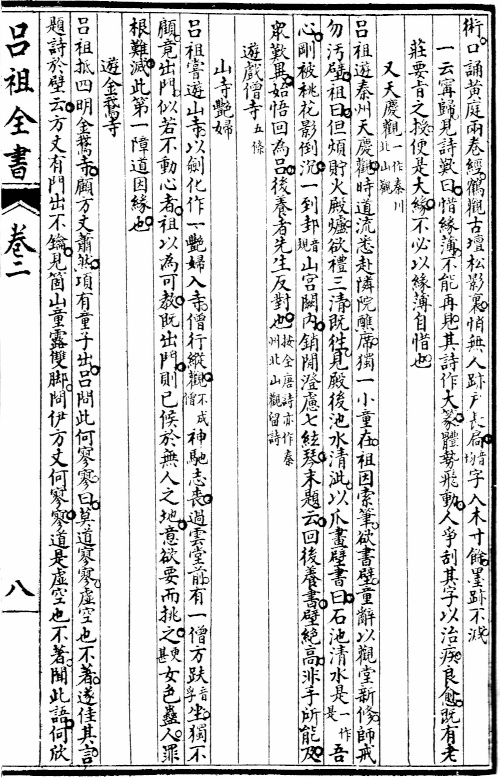 術口誦黃庭兩卷經鶴觀古壇松影裏悄無人跡戶長扃音坰字入木寸餘墨跡不滅
一云甯歸見詩歎曰惜緣薄不能再見其詩作大篆體勢飛動人爭刮其字以治疾良愈既有老
莊要旨之授便是大緣不必以緣薄自惜也
又天慶觀一作秦川北山觀
呂祖遊秦州天慶觀時道流悉赴隣院醮席獨一小童在祖因索筆欲書壁童辭以觀堂新修師戒
勿汚壁祖曰但煩貯火殿爐欲禮三清既徃見殿後池水清泚以爪畫壁書曰石池清水是一作是吾
心剛被桃花影倒沉一到邽音規山宮闕內銷閒澄慮七絃琴末題云回後養書壁絕高非手所能及
眾歎異始悟回為呂後養者先生反對也按全唐詩亦作秦州北山觀留詩
遊戲僧寺五條
山寺艷婦
呂祖嘗遊山寺以劍化作一艷婦入寺僧行縱觀不成僧神馳志喪過雲堂前有一僧方趺音孚坐獨不
顧竟出門似若不動心者祖以為可敎既出門則已候於無人之地意欲要而挑之更甚女色蠱人罪
根難滅此第一障道因緣也
遊金鵞寺
呂祖抵四明金鵞寺顧方丈蕭然項有童子出呂問此何寥寥曰莫道寥寥虛空也不著遂佳其言
題詩於壁云方丈有門出不鑰見箇山童露雙脚問伊方丈何寥寥道是虛空也不著聞此語何欣
呂祖全書
卷二
八